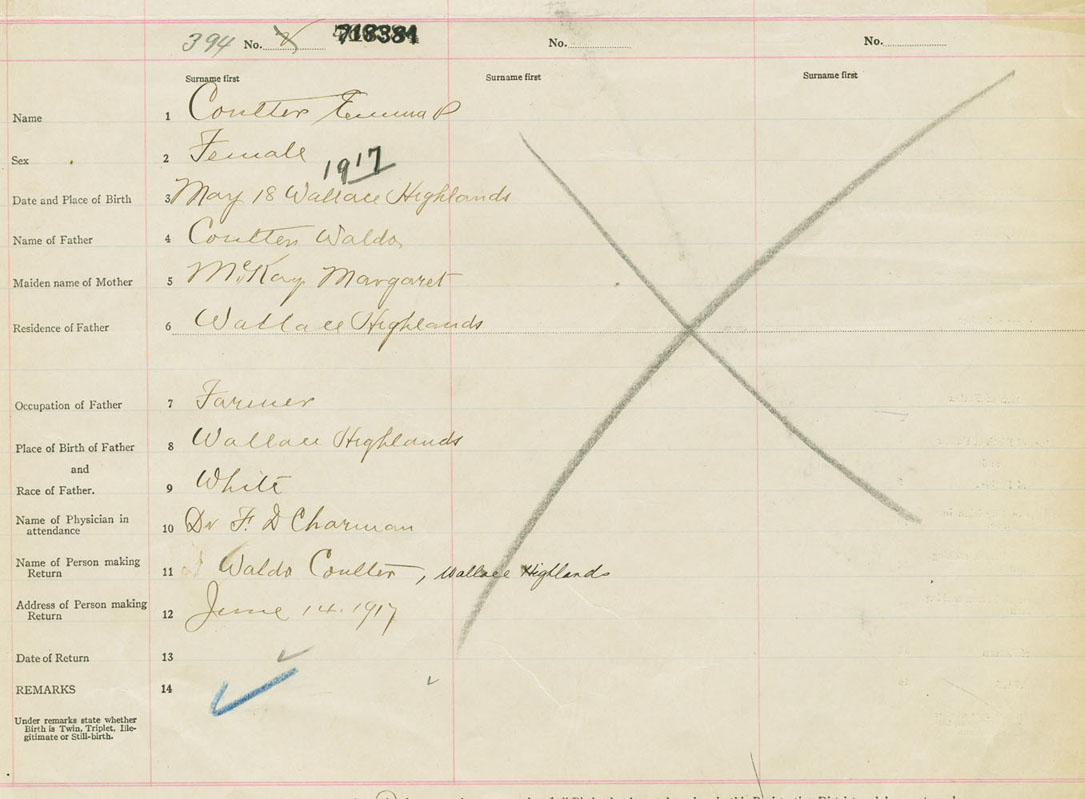 394 No. 718384 No. No.
Surname first Surname first Surname first
Name 1 Coulter Emma P
Sex 2 Female
1917
Date and Place of Birth 3 May 18 Wallace Highlands
Name of Father 4 Coulter Waldo
Maiden name of Mother 5 McKay Margaret
Residence of Father 6 Wallace Highlands
Occupation of Father 7 Farmer
Place of Birth of Father 8 Wallace Highlands
and
Race of Father. 9 White
Name of Physician in
attendance 10 Dr F. D Charman
Name of Person making
Return 11 Waldo Coulter, Wallace Highlands
Address of Person making
Return 12 June 14. 1917
Date of Return 13
REMARKS 14
Under remarks state whether
Birth is Twin, Triplet, Ille-
gitimate or Still-birth.